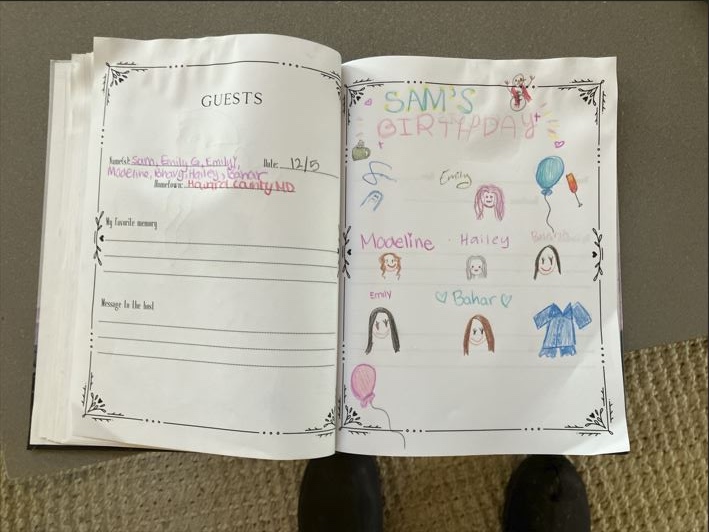 GUESTS
Name(s): Sam, Emily G, Emily Y,
Date: 12/5
Madeline, Bhavg, Hailey, Bahar
Hometown: Howard County MD
My favorite memory
Message to the host
SAM'S
BIRTHDAY
Emily
Madeline
Hailey
Emily
Bahar